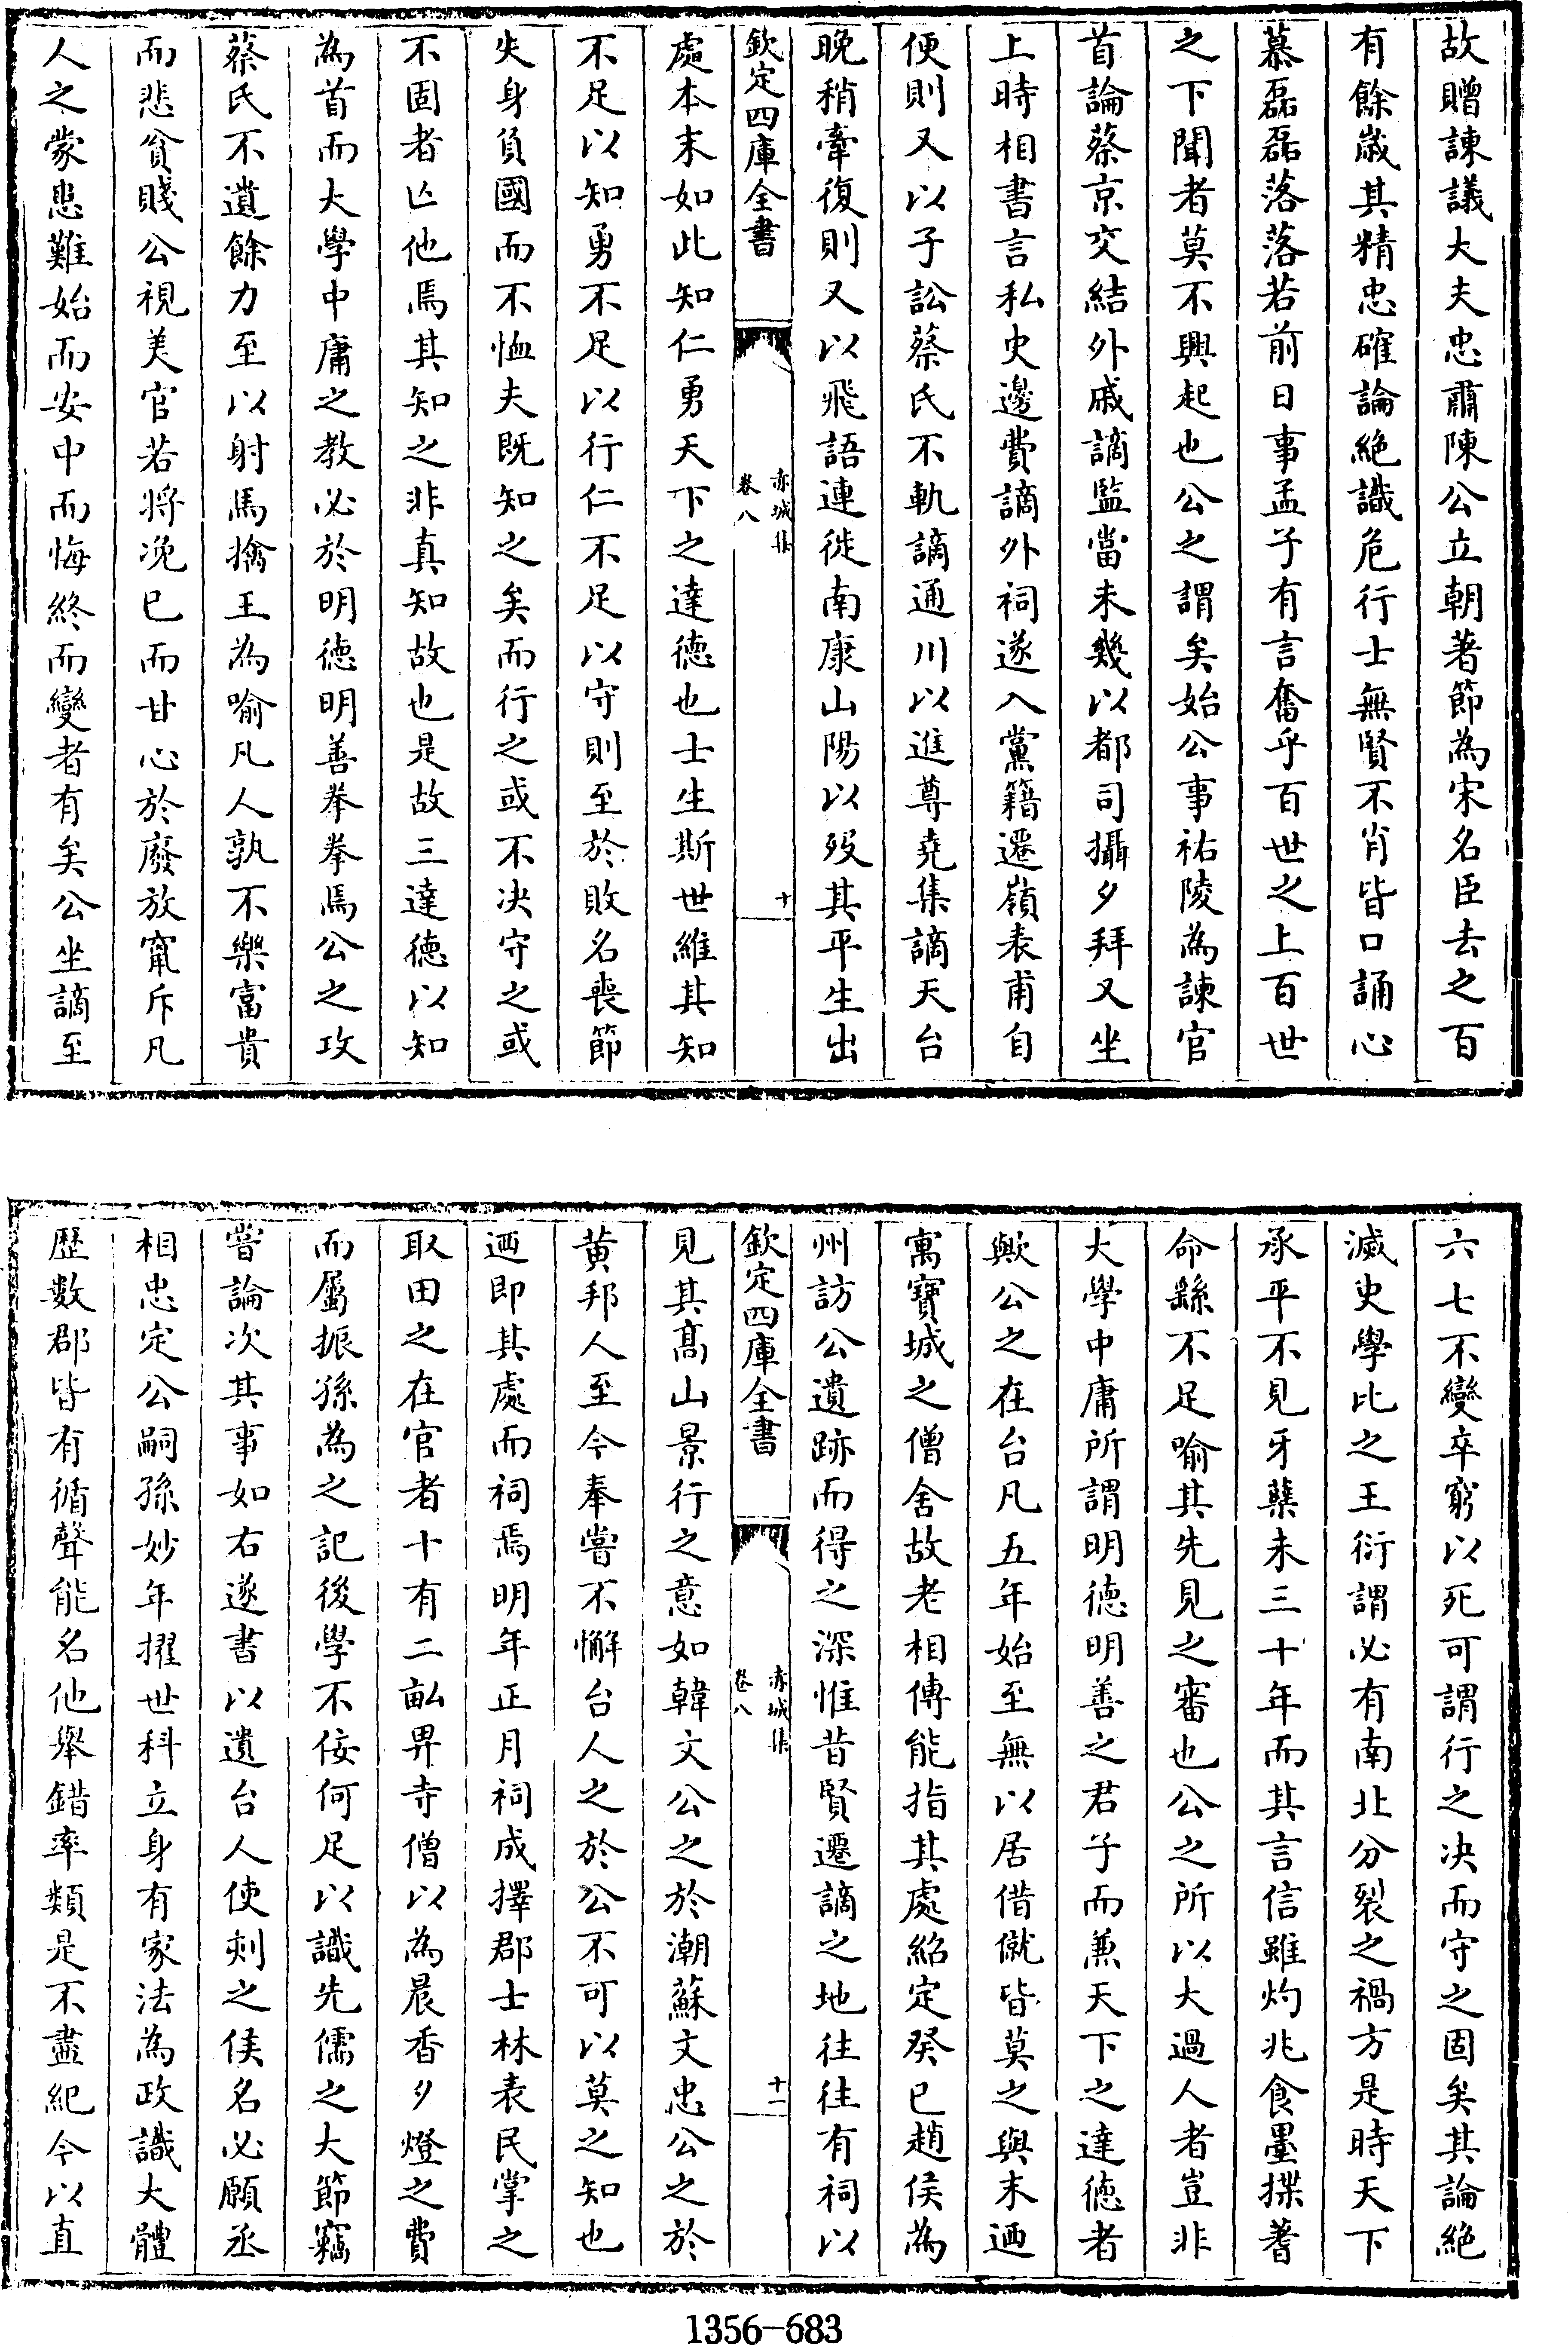 故贈諫議大夫忠肅陳公立朝著節為宋名臣去之百
有餘嵗其精忠確論絶識危行士無賢不肖皆口誦心
慕磊磊落落若前日事孟子有言奮乎百世之上百世
之下聞者莫不興起也公之謂矣始公事祐陵為諫官
首論蔡京交結外戚謫監當未幾以都司攝夕拜又坐
上時相書言私史邊費謫外祠遂入黨籍遷嶺表甫自
便則又以子訟蔡氏不軌謫通川以進尊堯集謫天台
晚稍牽復則又以飛語連徙南康山陽以歿其平生出
欽定四庫全書
赤城集
卷八
十
處本末如此知仁勇天下之達德也士生斯世維其知
不足以知勇不足以行仁不足以守則至於敗名喪節
失身負國而不恤夫既知之矣而行之或不决守之或
不固者亡他焉其知之非真知故也是故三達德以知
為首而大學中庸之教必於明德明善拳拳焉公之攻
蔡氏不遺餘力至以射馬擒王為喻凡人孰不樂富貴
而悲貧賤公視美官若將凂已而甘心於廢放竄斥凡
人之蒙患難始而安中而悔終而變者有矣公坐謫至
六七不變卒窮以死可謂行之决而守之固矣其論絶
滅史學比之王衍謂必有南北分裂之禍方是時天下
承平不見牙蘖未三十年而其言信雖灼兆食墨揲蓍
命繇不足喻其先見之審也公之所以大過人者豈非
大學中庸所謂明德明善之君子而兼天下之達德者
歟公之在台凡五年始至無以居借僦皆莫之與末迺
寓寶城之僧舍故老相傳能指其處紹定癸巳趙侯為
州訪公遺跡而得之深惟昔賢遷謫之地往往有祠以
欽定四庫全書
赤城集
卷八
十一
見其髙山景行之意如韓文公之於潮蘇文忠公之於
黄邦人至今奉嘗不懈台人之於公不可以莫之知也
迺即其處而祠焉明年正月祠成擇郡士林表民掌之
取田之在官者十有二畝畀寺僧以為晨香夕燈之費
而屬振孫為之記後學不佞何足以識先儒之大節竊
嘗論次其事如右遂書以遺台人使刻之侯名必願丞
相忠定公嗣孫妙年擢世科立身有家法為政識大體
歴數郡皆有循聲能名他舉錯率類是不盡紀今以直
1356-683